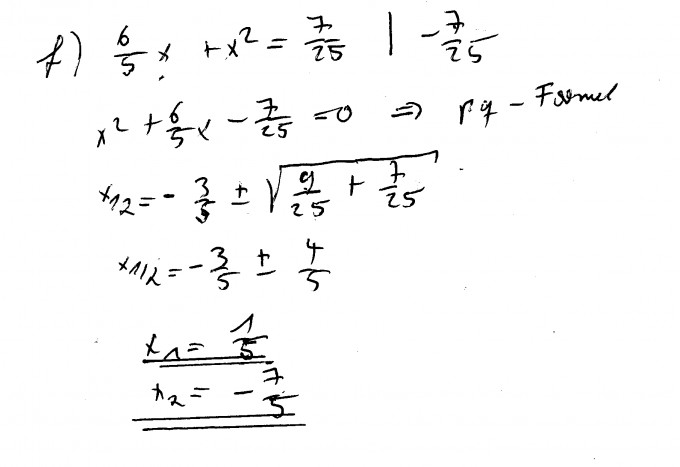 f) 6/5 x + x² = 7/25 | - 7/25
x² + 6/5 x - 7/25 = 0 ⇒ pq - Formel
x12 = - 3/5 ± √(9/25 + 7/25)
x1/2 = - 3/5 ± 4/5
x1 = 1/5
x2 = - 7/5